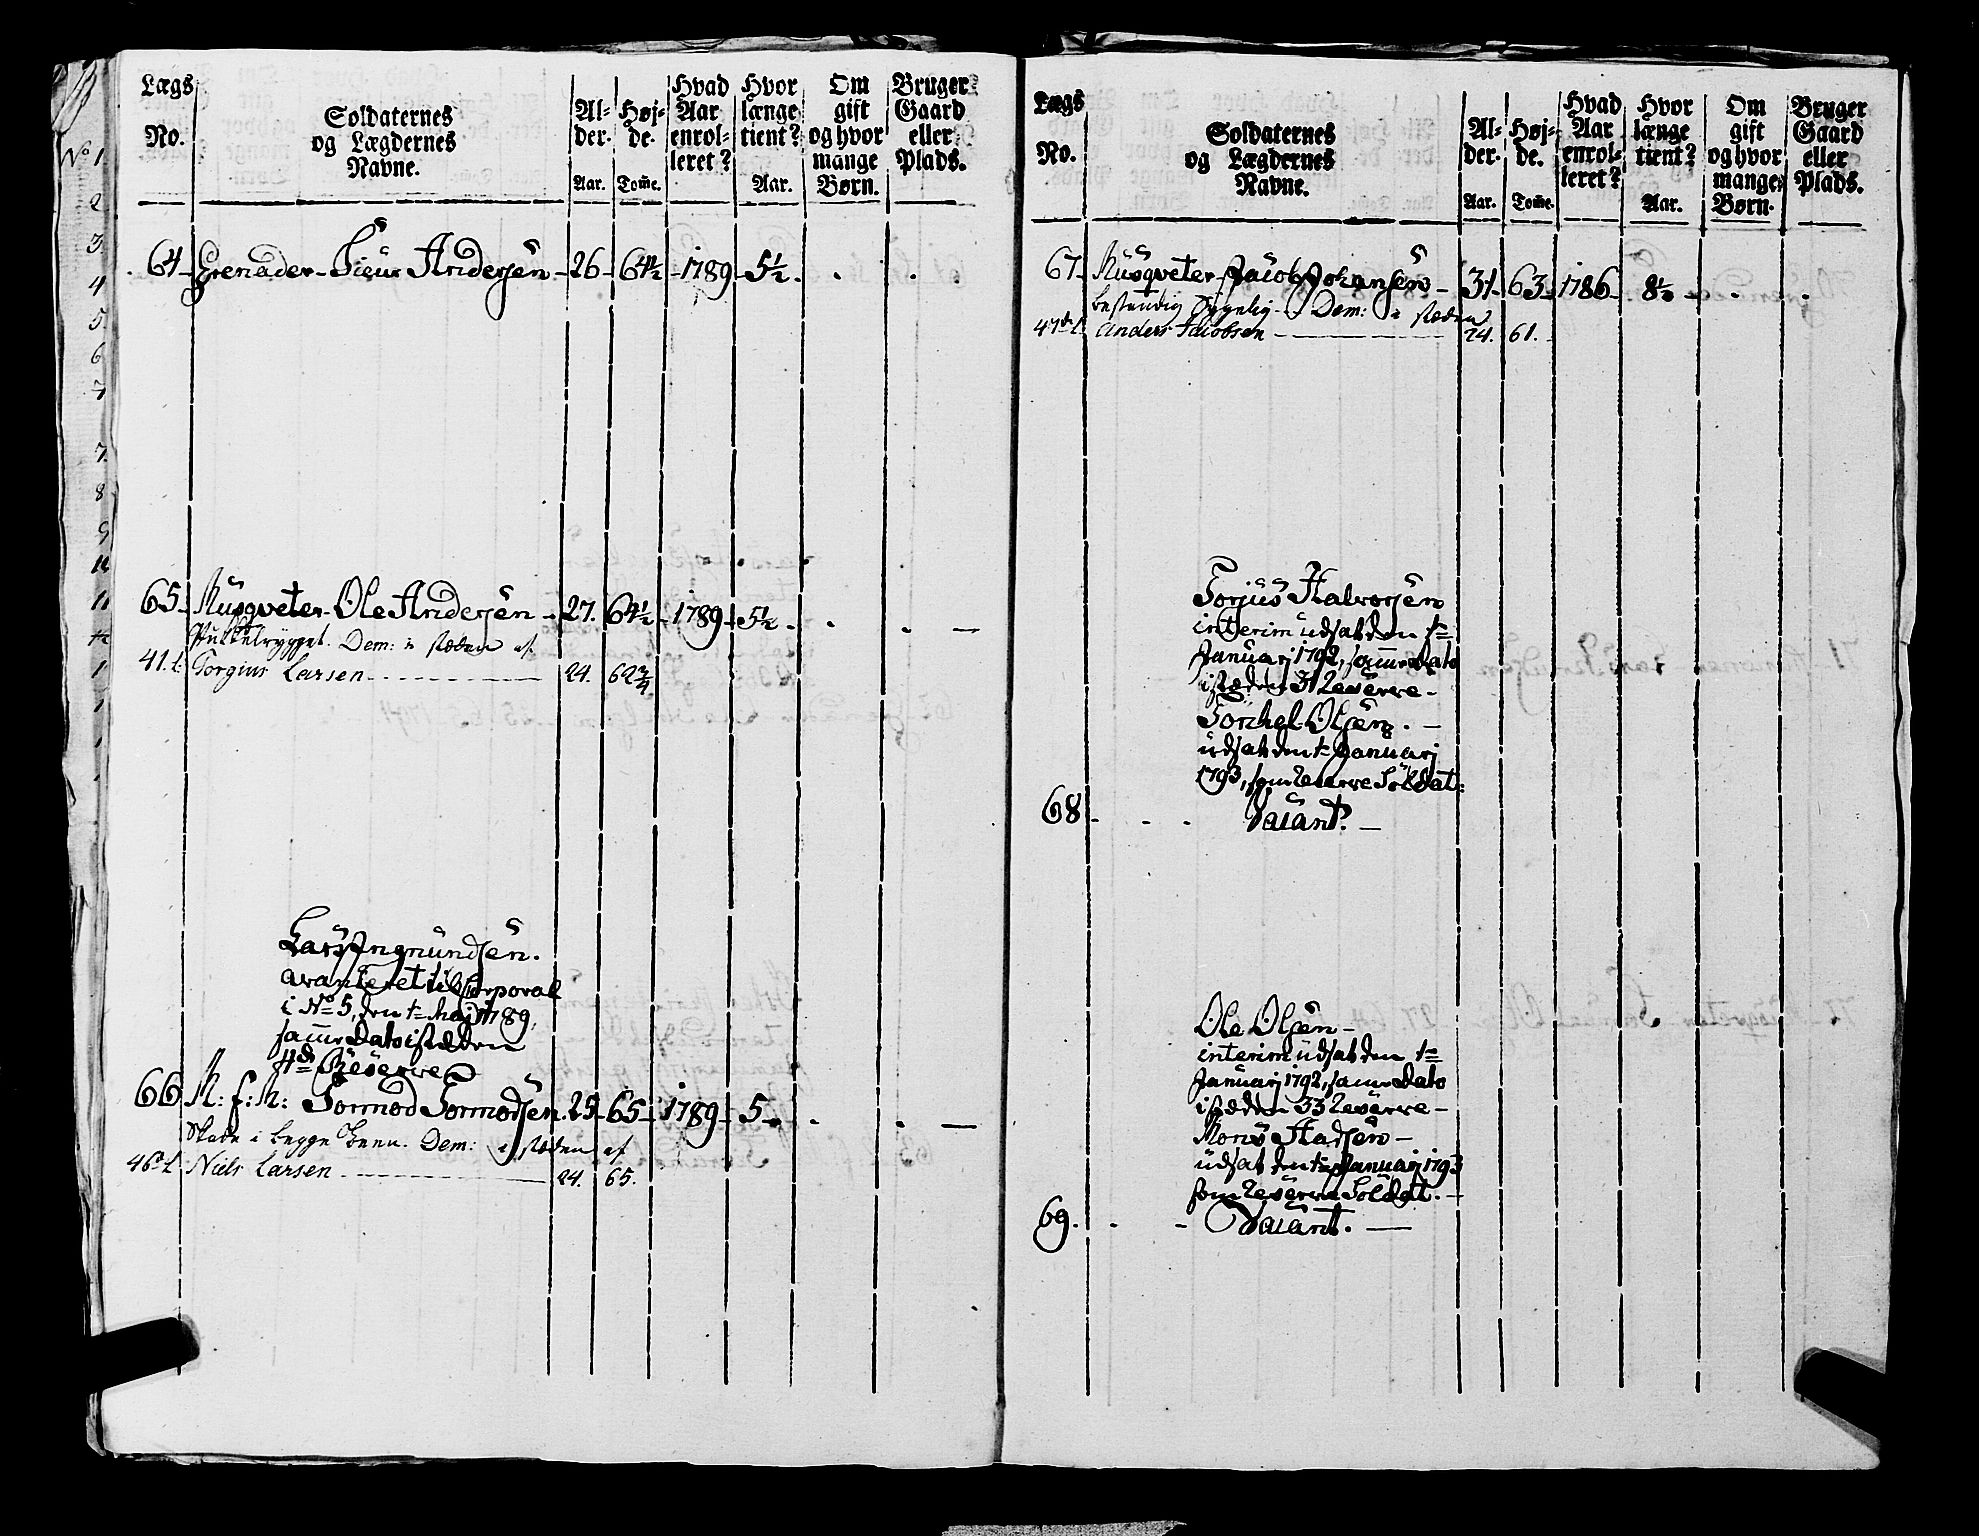 Lægs No. Soldaternes og Lægdernes Navne. Al-der. Aar. Høj-de. Tom̄e. Hvad Aar enrol-leret? Hvor længe tient? Aar. Om gift og hvor mange Børn. Bruger Gaard eller Plads.
64 Grenader Siur Andersen 26 64½ 1789 5½
65 Musqveter Ole Andersen 27. 64½ 1789 5½
Pukkelrygget. Dem: i stæden af
41. t. Torgius Larsen 24. 62¾
Lars Ingmundsen.
avanceret til Corporal
i No 5, den 1te Maj 1789,
samme Dato isteden
4de Reserve
66 M: f: M: Tormod Tormodsen 25 65 1789 5
Skade i begge been. Dem: i stæden af
46. t. Niels Larsen 24. 65.
Lægs No. Soldaternes og Lægdernes Navne. Al-der. Aar. Høj-de. Tom̄e. Hvad Aar enrol-leret? Hvor længe tient? Aar. Om gift og hvor mange Børn. Bruger Gaard eller Plads.
67 Musqveter Jacob Johansen 31 63 1786 8½
bestendig sygelig. Dem: i stæden
47de t. Anders Jacobsen 24. 61.
Torjus Halvorsen
interim udsat den 1te
Januarj 1792, samme Dato
isteden 31 Reserve
Torkel Olsen.
udsat den 1te Januarj
1793, som Reserve Soldat:
68 Vacant.
Ole Olsen
interim udsat den 1te
Januarj 1792, samme Dato
isteden 33 Reserve
Mons Hadsen
udsat den 1te Januarj 1793
som Reserve Soldat.
69. Vacant.
No 1
2
3
4
5
6
7
7.
8
9